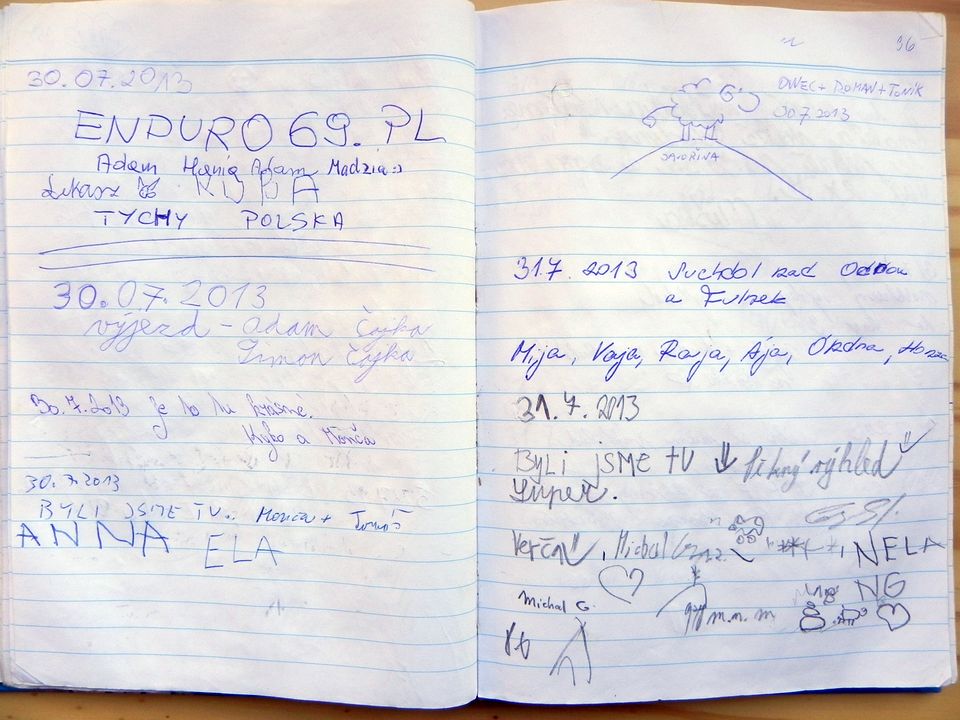 30.07.2013
ENDURO 69.PL
Adam Hania Adam Madzia :)
Łukasz KUBA
TYCHY POLSKA
30.07.2013
výjezd - Adam Čajka
Šimon Čajka
30.7.2013 je to tu krásné.
Kubo a Monča
30.7.2013
BYLI JSME TU.. Monča + Tomáš
ANNA
ELA
36
OWEC + ROMAN + TONÍK
30.7.2013
JAVOŘINA
31.7. 2013 Suchdol nad Odrou
a Fulnek
Mija, Vaja, Raja, Ája,
31.7.2013
BYLI JSME TU Pěkný výhled
Super.
Verča, Michal
, NELA
NG
Michal G.
m.m.m